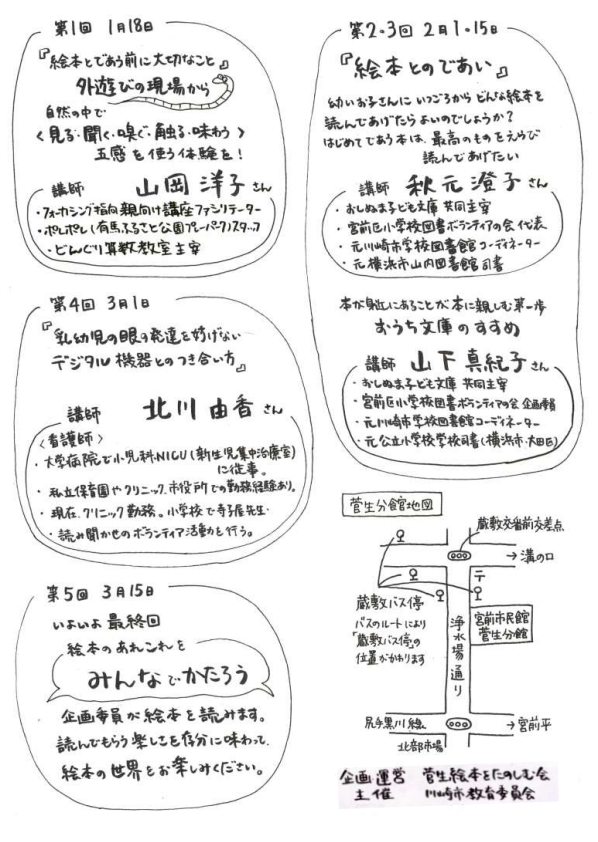 第1回 1月18日
『絵本とであう前に大切なこと』
外遊びの現場から
自然の中で
〈見る・聞く・嗅ぐ・触る・味わう〉
五感を使う体験を!
講師 山岡洋子さん
・フォーカシング指向親向け講座ファシリテーター
・ポレポレ(有馬ふるさと公園プレーパーク)スタッフ
・どんぐり算数教室主宰
第4回 3月1日
『乳幼児の眼の発達を妨げない
デジタル機器とのつき合い方』
講師 北川由香さん
〈看護師〉
・大学病院で小児科・NICU(新生児集中治療室)
に従事。
・私立保育園やクリニック、市役所での勤務経験あり。
・現在、クリニック勤務。小学校で寺子屋先生・
・読み聞かせのボランティア活動を行う。
第5回 3月15日
いよいよ最終回
絵本のあれこれを
みんなでかたろう
企画委員が絵本を読みます。
読んでもらう楽しさを存分に味わって、
絵本の世界をお楽しみください。
第2・3回 2月1・15日
『絵本とのであい』
幼いお子さんにいつごろからどんな絵本を
読んであげたらよいのでしょうか?
はじめてであう本は、最高のものをえらび
読んであげたい
講師 秋元澄子さん
・おしぬま子ども文庫 共同主宰
・宮前区小学校図書ボランティアの会 代表
・元川崎市学校図書館コーディネーター
・元横浜市山内図書館司書
本が身近にあることが本に親しむ第一歩
おうち文庫のすすめ
講師 山下真紀子さん
・おしぬま子ども文庫 共同主宰
・宮前区小学校図書ボランティアの会 企画委員
・元川崎市学校図書館コーディネーター
・元公立小学校学校司書(横浜市、大田区)
菅生分館地図
蔵敷交番前交差点
→溝の口
〒
蔵敷バス停
バスのルートにより
「蔵敷バス停」の
位置がかわります
浄水場通り
宮前市民館
菅生分館
尻手黒川線
→宮前平
北部市場
企画運営 菅生絵本をたのしむ会
主催 川崎市教育委員会